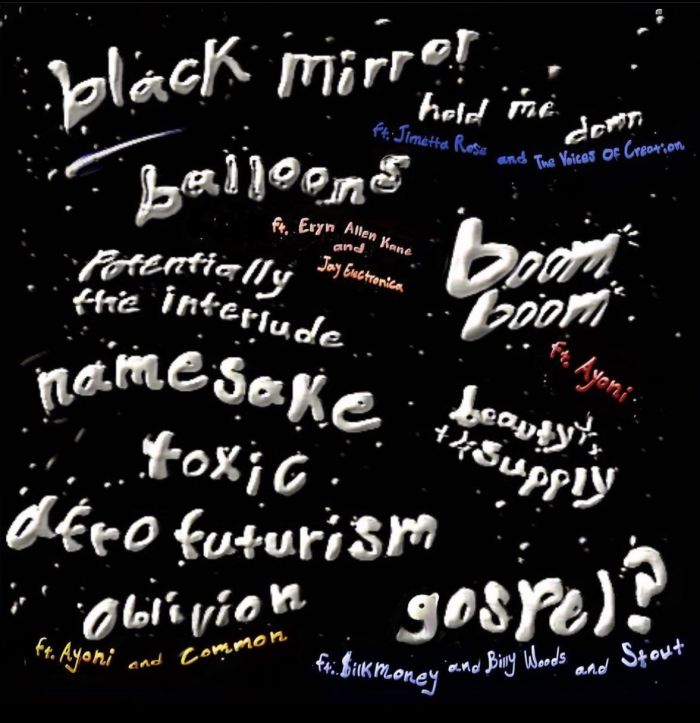 black mirror
hold me down
ft. Jimetta Rose and The Voices Of Creation
balloons
ft. Eryn Allen Kane
and
Jay Electronica
Potentially
the interlude
boom
boom
ft. Ayoni
namesake
beauty
supply
toxic
afro futurism
oblivion
ft. Ayoni and Common
gospel?
ft. $ilkmoney and Billy Woods and Stout